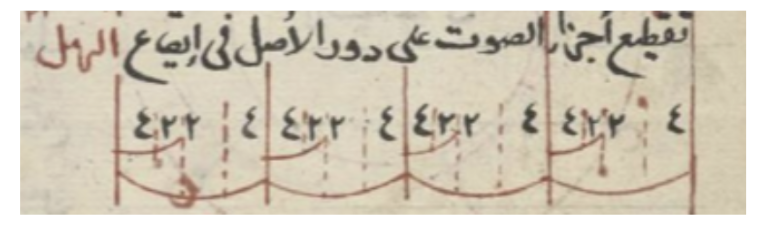 تقطيع أجزاء الصوت على دور الأصل فى إيقاع الهزل
٤ ٢٢٤ ٤ ٢٢٤ ٤ ٢٢٤ ٤ ٢٢٤